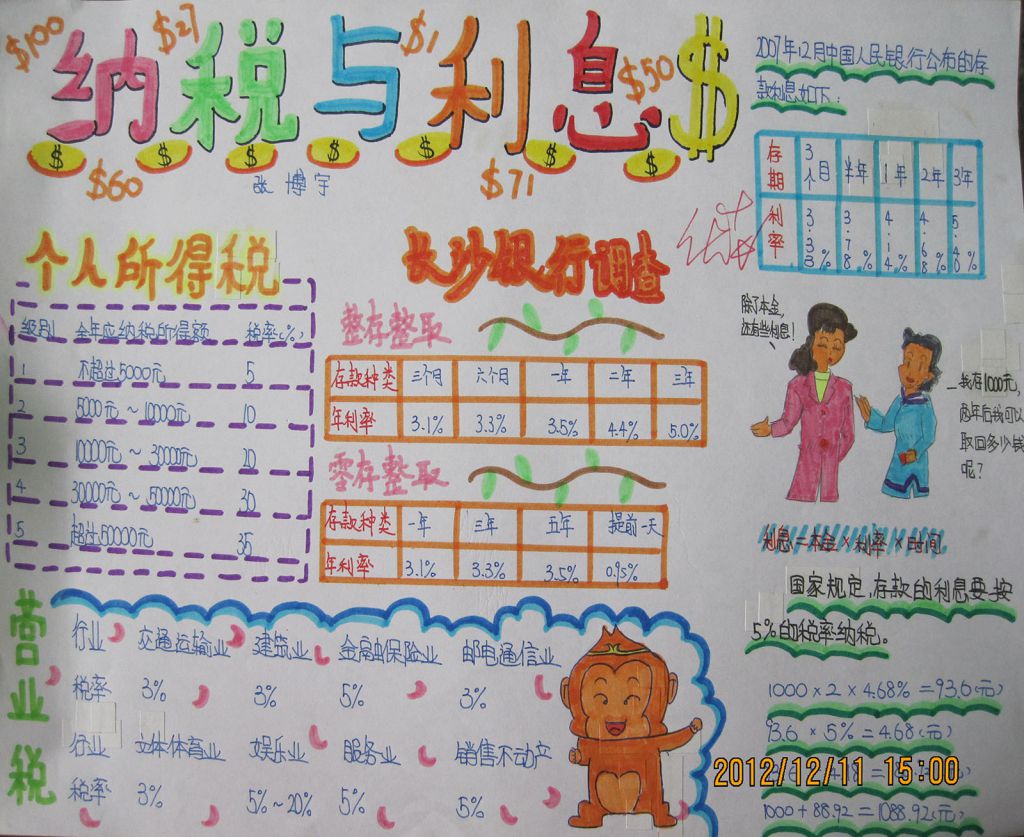 $100 $27 $1 $50
纳税与利息$
$ $ $ $ $ $ $
$60 $71
张博宇
2007年12月中国人民银行公布的存
款利息如下:
存期 3个月 半年 1年 2年 3年
利率 3.33% 3.78% 4.14% 4.68% 5.40%
个人所得税
级别 全年应纳税所得额 税率(%)
1 不超过5000元 5
2 5000元~10000元 10
3 10000元~30000元 20
4 30000元~50000元 30
5 超过50000元 35
长沙银行调查
整存整取
存款种类 三个月 六个月 一年 二年 三年
年利率 3.1% 3.3% 3.5% 4.4% 5.0%
零存整取
存款种类 一年 三年 五年 提前一天
年利率 3.1% 3.3% 3.5% 0.95%
除了本金,
还有些利息!
我存1000元,
两年后我可以
取回多少钱
呢?
利息=本金×利率×时间
国家规定,存款的利息要按
5%的税率纳税。
1000×2×4.68%=93.6(元)
93.6×5%=4.68(元)
1000+88.92=1088.92(元)
营业税
行业 交通运输业 建筑业 金融保险业 邮电通信业
税率 3% 3% 5% 3%
行业 文体体育业 娱乐业 服务业 销售不动产
税率 3% 5%~20% 5% 5%
2012/12/11 15:00